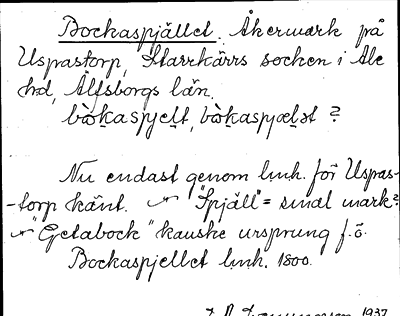 Bockaspjället. Åkermark på
Uspastorp, Starrkärrs socken i Ale
hd, Älfsborgs län.
bòkaspjelt, bòkaspjælst ?
Nu endast genom lnh. för Uspas-
-torp känt. "Spjäll" = smal mark?
"Getabock" kanske ursprung f. ö.
Bockaspjellet lnh. 1800.
1937